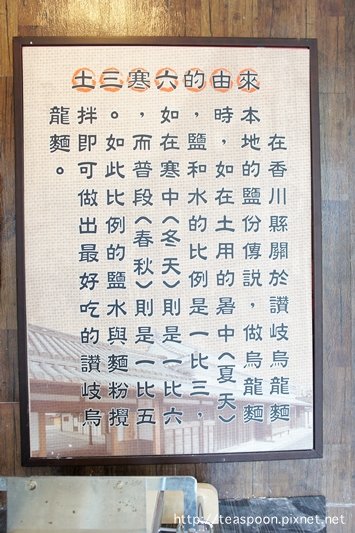 土三寒六的由來
在香川縣關於讚岐烏龍麵
本地的鹽份傳說，做烏龍麵
時，如在土用的暑中(夏天)
，鹽和水的比例是一比三，
如在寒中(冬天)則是一比六
，而普段(春秋)則是一比五
。如此比例的鹽水與麵粉攪
拌即可做出最好吃的讚岐烏
龍麵。
http://teaspoon.pixnet.net